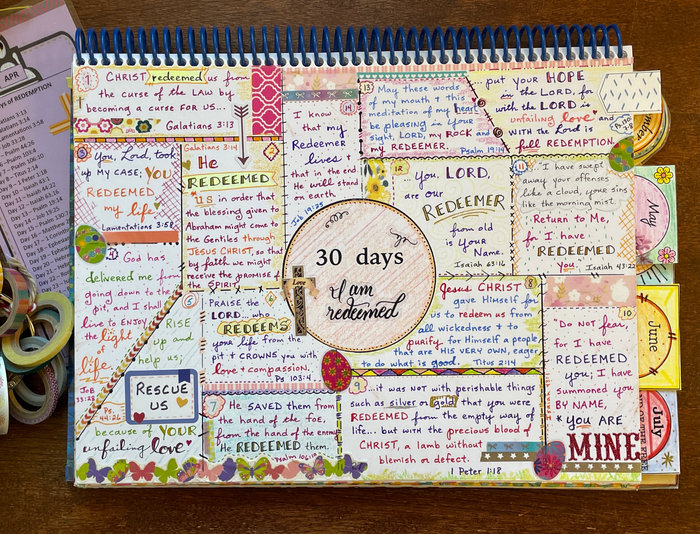 APR
OF REDEMPTION
1
CHRIST redeemed us from
the curse of the LAW by
becoming a curse FOR US...
Galatians 3:13
Galatians 3:14
He
REDEEMED
us in order that
the blessing given to
Abraham might come to
the Gentiles through
JESUS CHRIST, so that
by faith we might
receive the promise of
the SPIRIT.
3
You, Lord, took
up MY CASE; YOU
REDEEMED
my life.
Lamentations 3:58
God has
delivered me from
going down to the
pit, and I shall
live to ENJOY
the light
of
life.
Job
33:28
PRAISE the
LORD... who
REDEEMS
your life from the
pit & CROWNS you with
love & compassion.
Ps 103:4
RISE
up and
help us;
RESCUE
US
Ps.
44:26
because of YOUR
unfailing love
7
He SAVED them from
the hand of the foe,
from the hand of the enemy
He REDEEMED them.
Psalm 106:10
Jesus CHRIST
8
gave Himself for
us to redeem us from
all wickedness & to
purify for Himself a people
that are HIS VERY OWN, eager
to do what is good. Titus 2:14
9
...it was not with perishable things
such as silver or gold that you were
REDEEMED from the empty way of
life... but with the precious blood of
CHRIST, a lamb without
blemish or defect.
1 Peter 1:18
10
Do not fear,
for I have
REDEEMED
you; I have
summoned you
BY NAME,
YOU ARE
MINE
11
...I have swept
away your offenses
like a cloud, your sins
like the morning mist.
Return to Me,
for I have
REDEEMED
you.
Isaiah 43:22
12
You, LORD,
are OUR
REDEEMER
from old
is YOUR
Name.
Isaiah 63:16
13
May these words
of my mouth & this
meditation of my heart
be pleasing in Your
sight, LORD, my ROCK and
my REDEEMER.
Psalm 19:14
14
I know
that my
Redeemer
lives &
that in the end
He will stand
on earth
Job 19:25
put YOUR HOPE
in the LORD, for
with the LORD is
unfailing love and
with the Lord is
full REDEMPTION.
30 days
I am
redeemed
Love
May
June
July